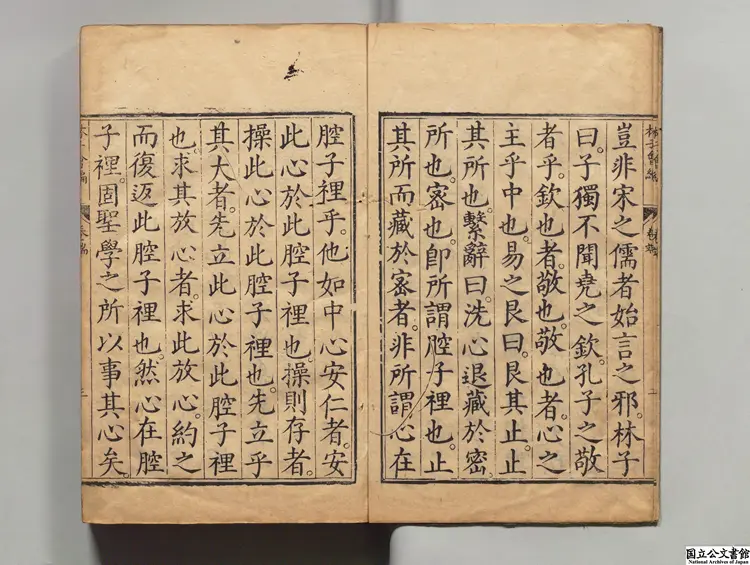 豈非宋之儒者始言之邪。林子
曰。子獨不聞堯之欽孔子之敬
者乎。欽也者。敬也。敬也者。心之
主乎中也。易之艮曰。艮其止。止
其所也。繫辭曰。洗心退藏於密。
所也。密也。卽所謂腔子裡也。止
其所而藏於密者。非所謂心在
腔子裡乎。他如中心安仁者。安
此心於此腔子裡也。操則存者。
操此心於此腔子裡也。先立乎
其大者。先立此心於此腔子裡
也。求其放心者。求此放心。約之
而復返此腔子裡也。然心在腔
子裡。固聖學之所以事其心矣
三
国立公文書館
National Archives of Japan